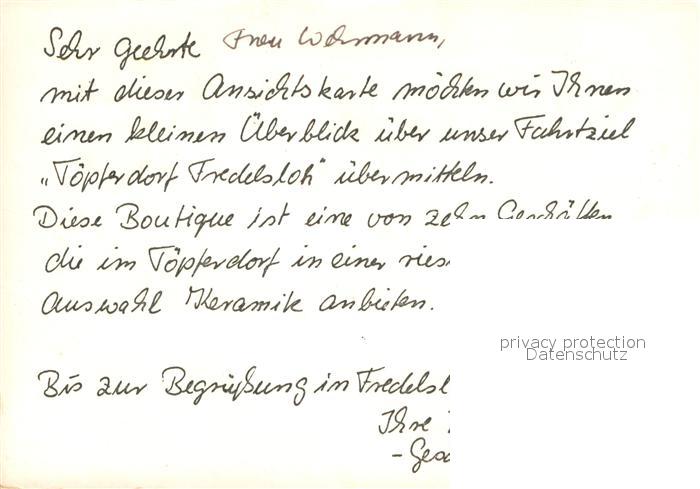 Sehr geehrte Frau
mit dieser Ansichtskarte möchten wir Ihnen
einen kleinen Überblick über unser Fahrtziel
„Töpferdorf Fredelsloh" übermitteln.
Diese Boutique ist eine von zehn Geschäften
die im Töpferdorf in einer ries
Auswahl Keramik anbieten.
privacy protection
Datenschutz
Bis zur Begrüßung in Fredelsl
Ihre
- Gesc